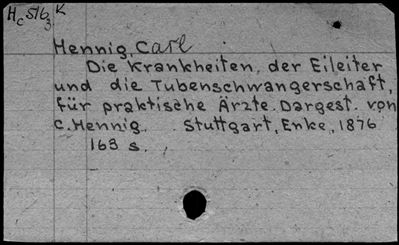 Hc 516 3 K
Hennig, Carl
Die Krankheiten der Eileiter
und die Tubenschwangerschaft,
für praktische Ärzte. Dargest. von
C. Hennig. Stuttgart, Enke, 1876
163 s.